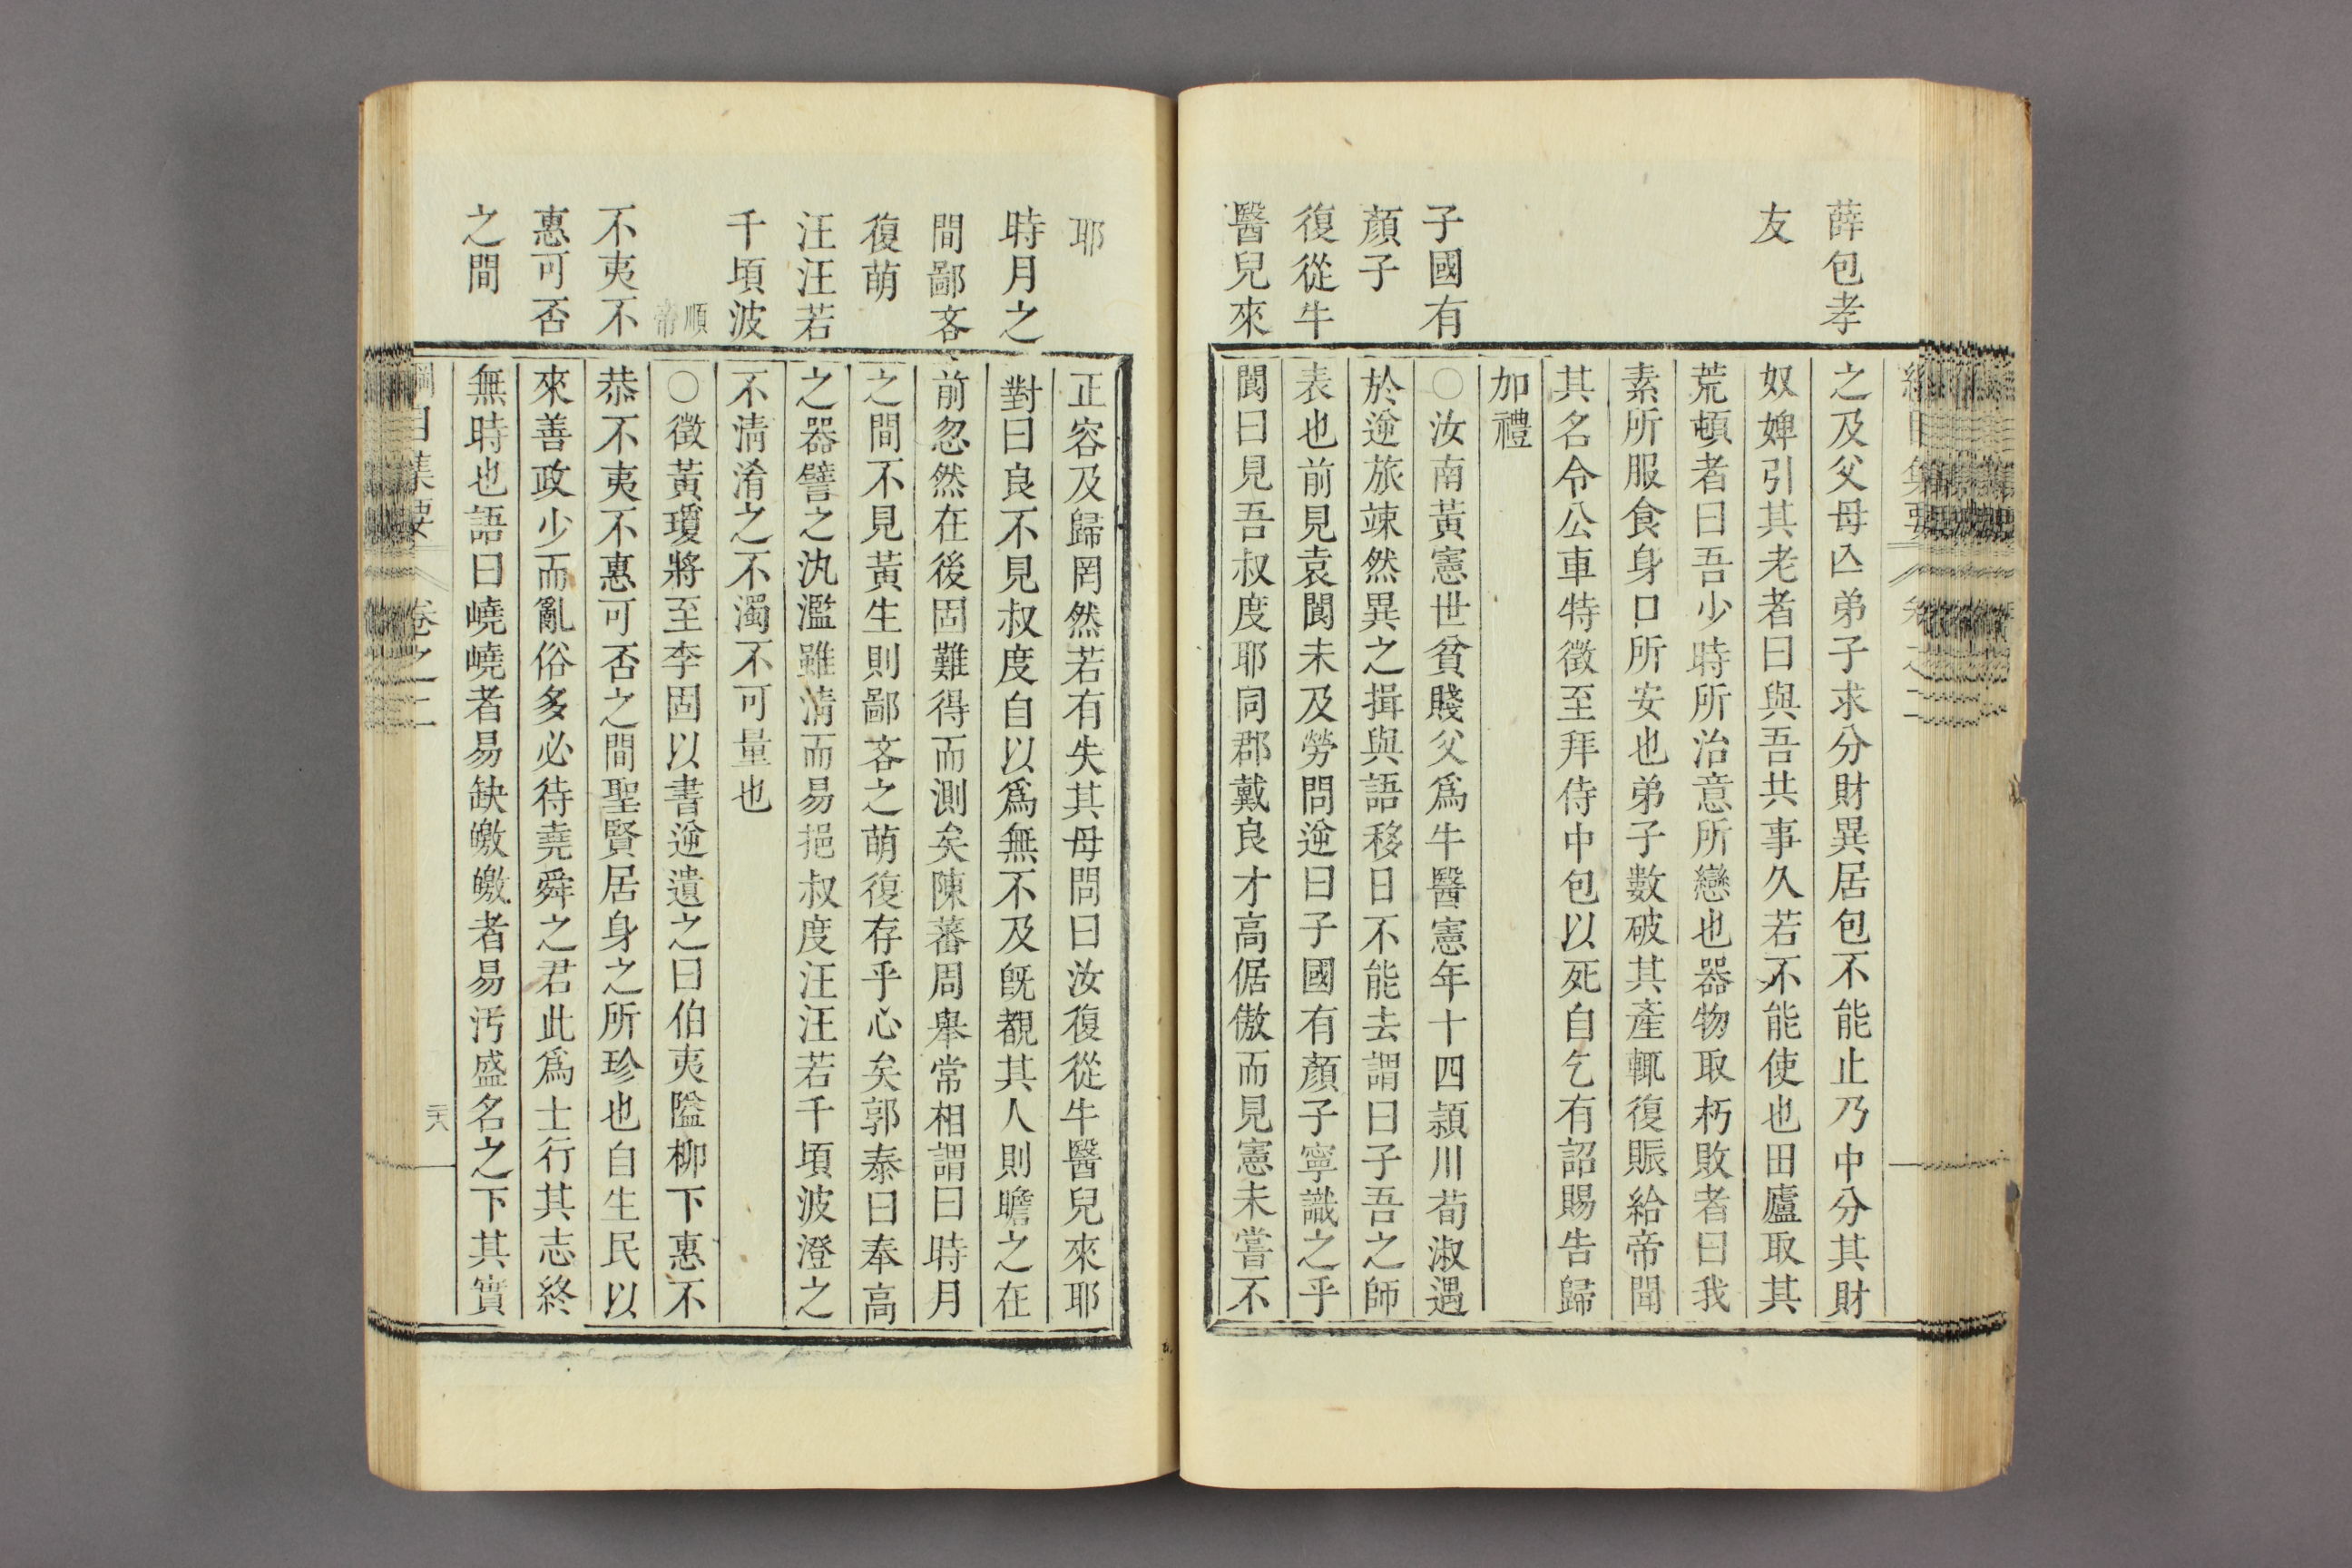 薛包孝
友
子國有
顏子
復從牛
醫兒來
之及父母亾弟子求分財異居包不能止乃中分其財
奴婢引其老者曰與吾共事久若不能使也田廬取其
荒頓者曰吾少時所治意所戀也器物取朽敗者曰我
素所服食身口所安也弟子數破其產輒復賑給帝聞
其名令公車特徵至拜侍中包以死自乞有詔賜告歸
加禮
○汝南黃憲世貧賤父爲牛醫憲年十四潁川荀淑遇
於逆旅竦然異之揖與語移日不能去謂曰子吾之師
表也前見袁閬未及勞問逆曰子國有顏子寧識之乎
閬曰見吾叔度耶同郡戴良才高倨傲而見憲未嘗不
耶
時月之
間鄙吝
復萌
汪汪若
千頃波
順帝
不夷不
惠可否
之間
正容及歸罔然若有失其母問曰汝復從牛醫兒來耶
對曰良不見叔度自以爲無不及旣覩其人則瞻之在
前忽然在後固難得而測矣陳蕃周舉常相謂曰時月
之間不見黃生則鄙吝之萌復存乎心矣郭泰曰奉高
之器譬之氿濫雖淸而易挹叔度汪汪若千頃波澄之
不淸淆之不濁不可量也
○徵黃瓊將至李固以書逆遺之曰伯夷隘柳下惠不
恭不夷不惠可否之間聖賢居身之所珍也自生民以
來善政少而亂俗多必待堯舜之君此爲士行其志終
無時也語曰嶢嶢者易缺皦皦者易汚盛名之下其實
綱目集要 卷之二
二十八